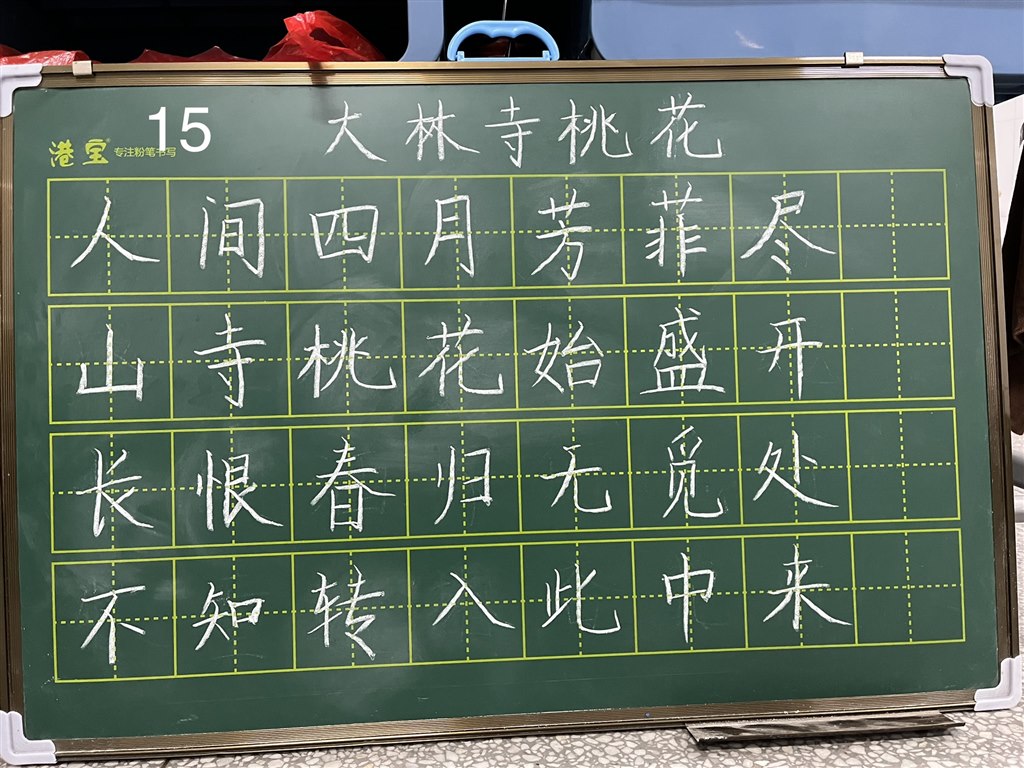 15
大林寺桃花
港宝 专注粉笔书写
人间四月芳菲尽
山寺桃花始盛开
长恨春归无觅处
不知转入此中来